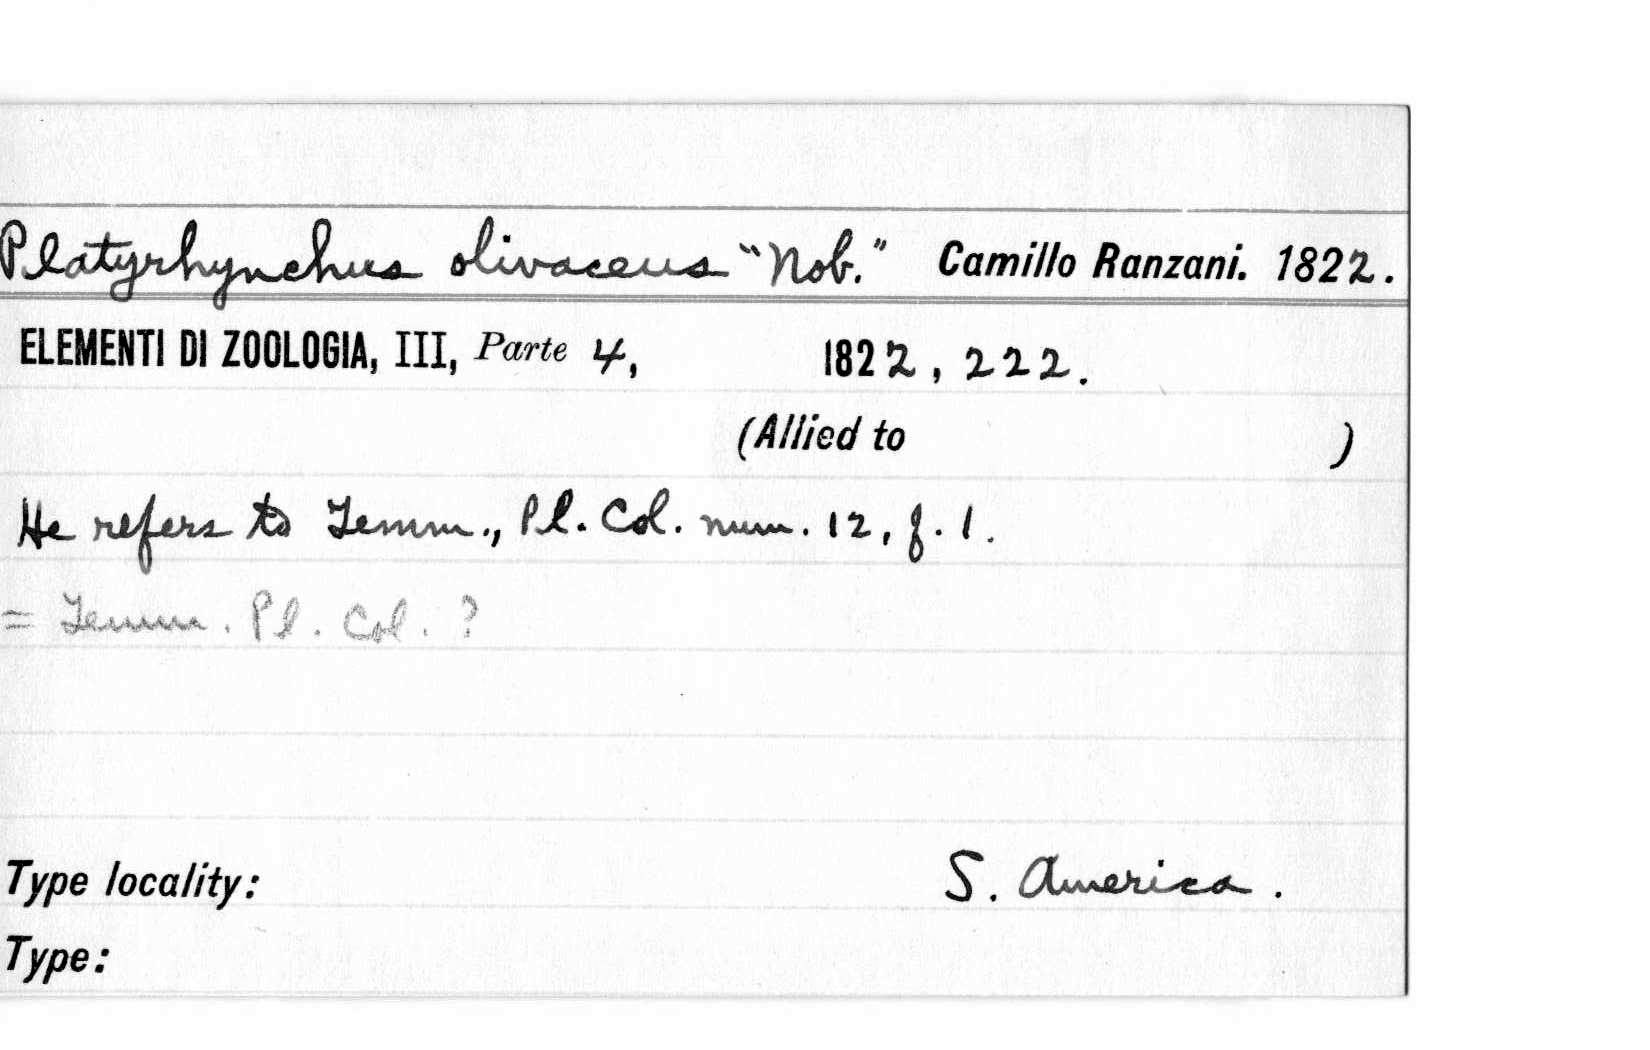 Platyrhynchus olivaceus "Nob." Camillo Ranzani. 1822.
ELEMENTI DI ZOOLOGIA, III, Parte 4, 1822, 222.
(Allied to )
He refers to Temm., Pl. Col. num. 12, f. 1.
= Temm. Pl. Col. ?
Type locality: S. America.
Type: